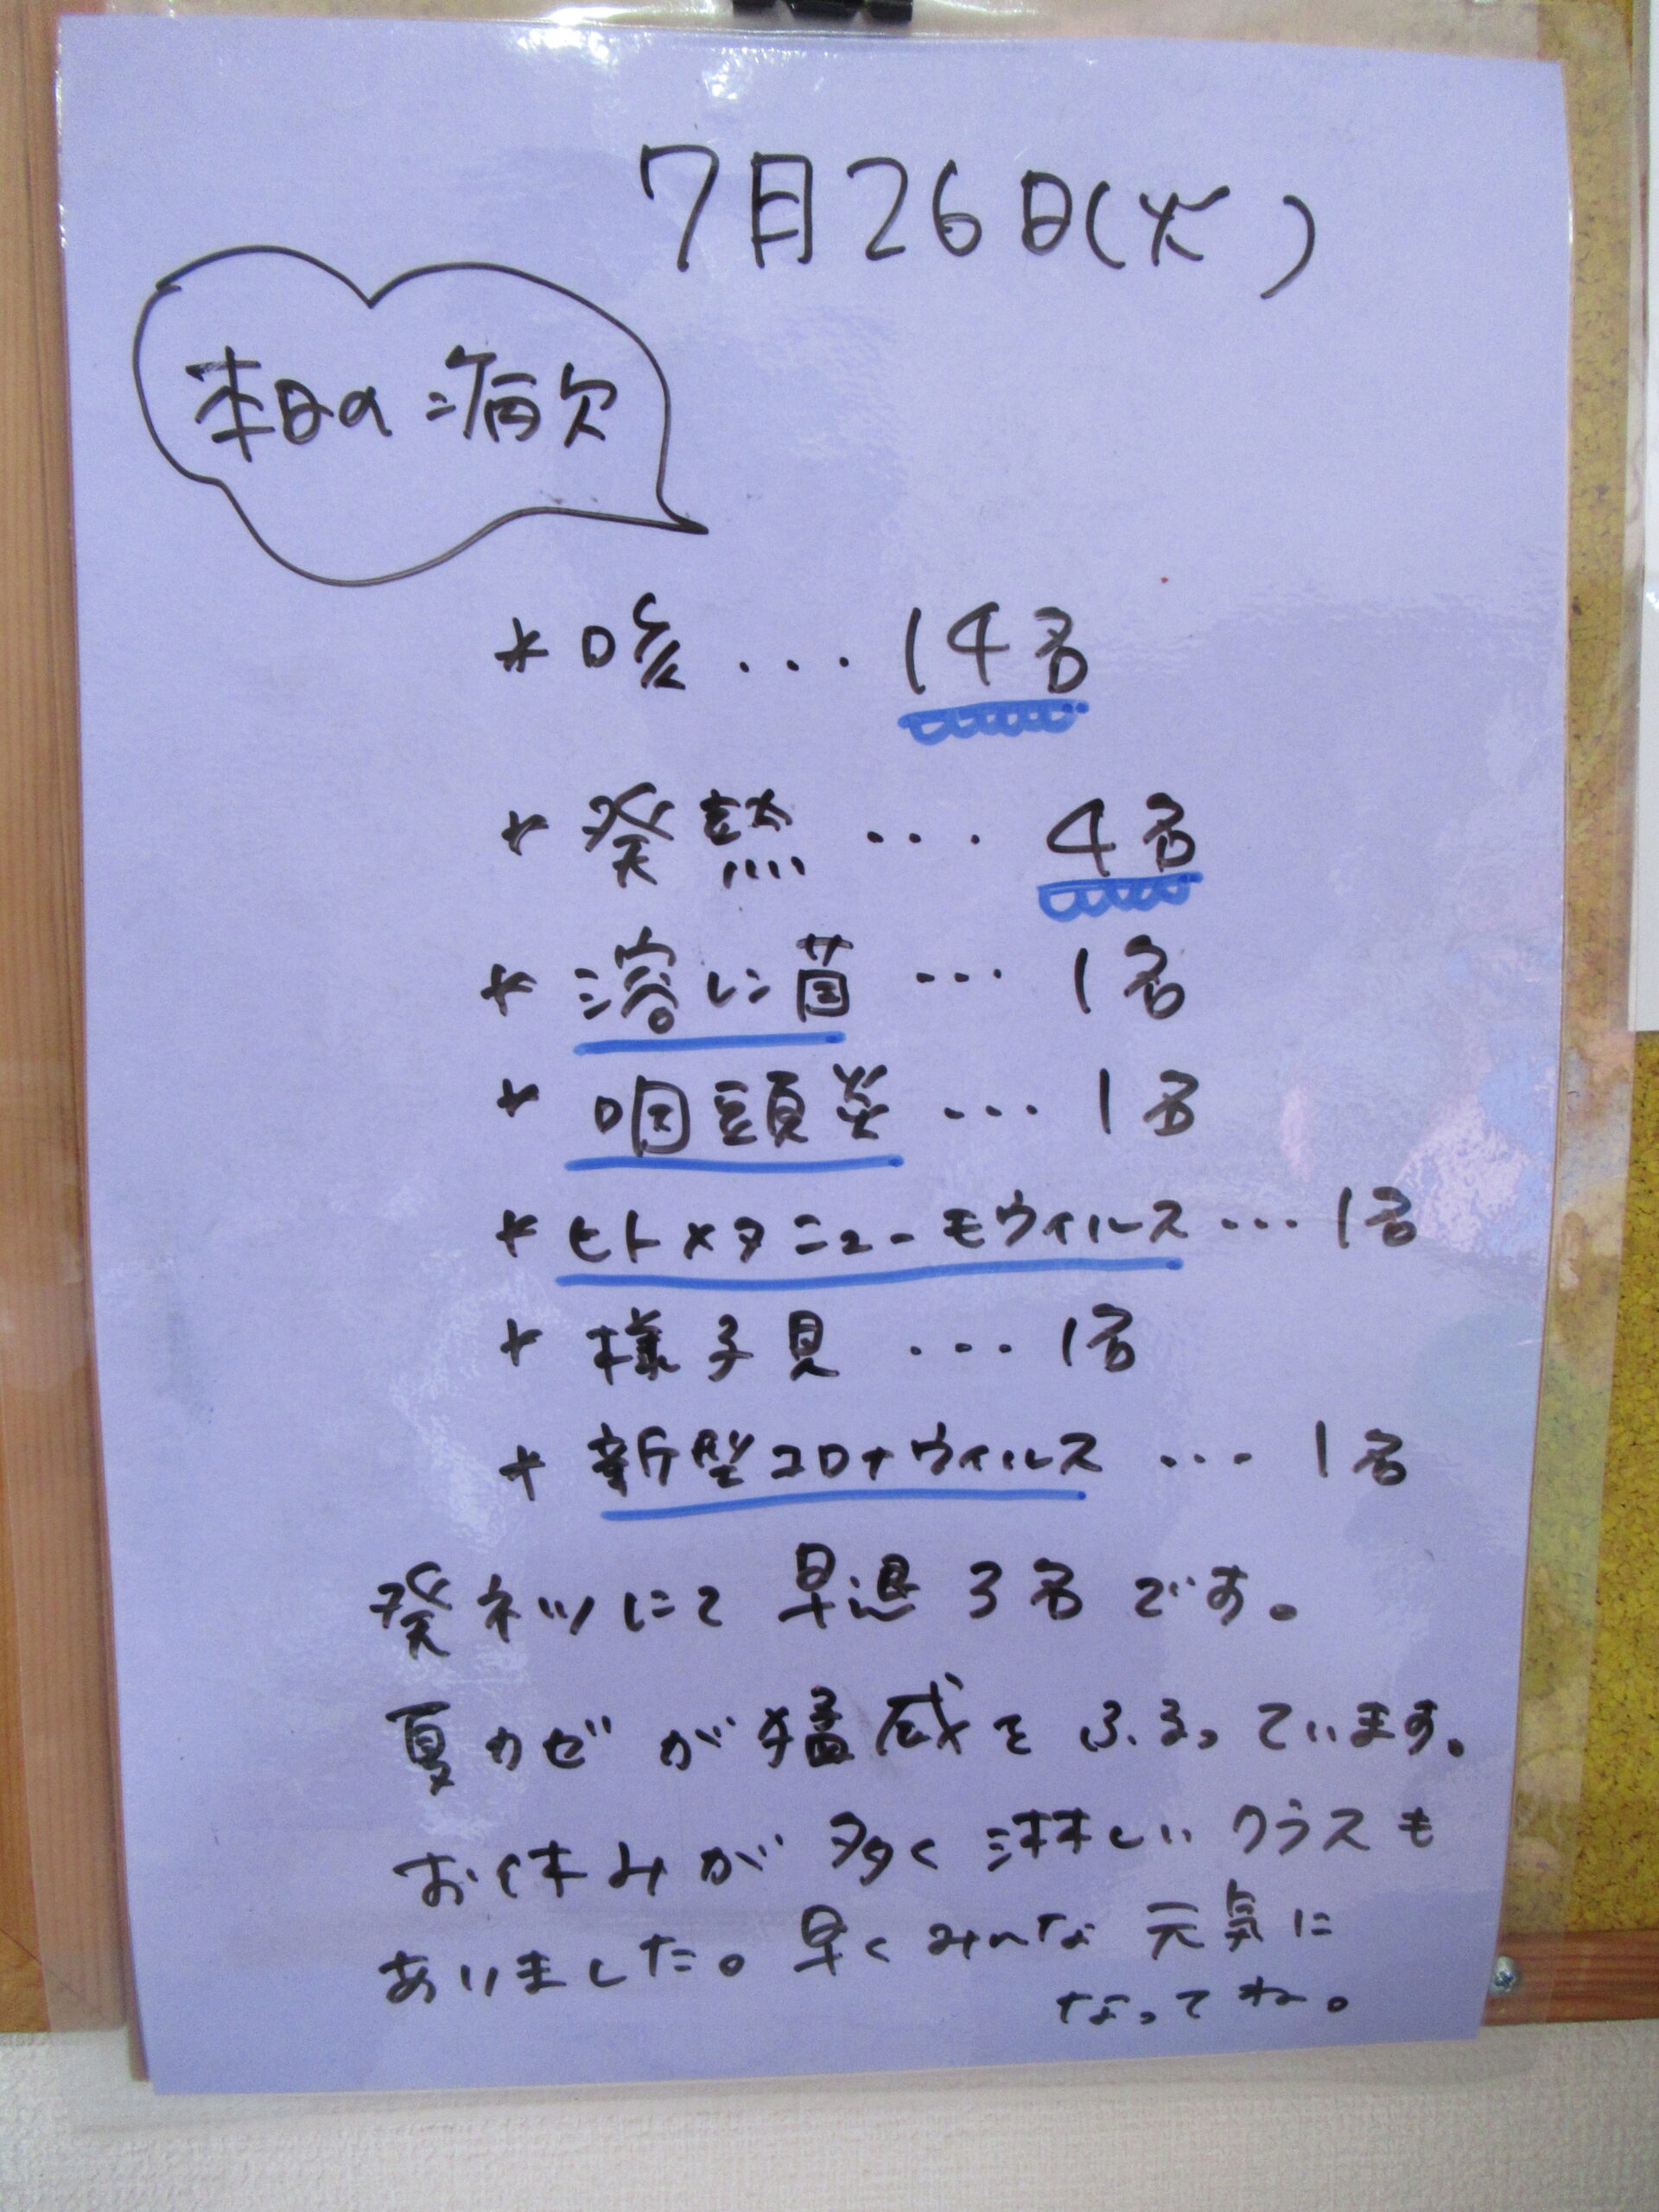 7月26日(火)
本日の病欠
* 咳 ... 14名
* 発熱 ... 4名
* 溶レン菌 ... 1名
* 咽頭炎 ... 1名
* ヒトメタニューモウィルス ... 1名
* 様子見 ... 1名
* 新型コロナウィルス ... 1名
発ネツにて 早退 3名です。
夏カゼが猛威をふるっています。
お休みが多く淋しいクラスも
ありました。早くみんな元気に
なってね。